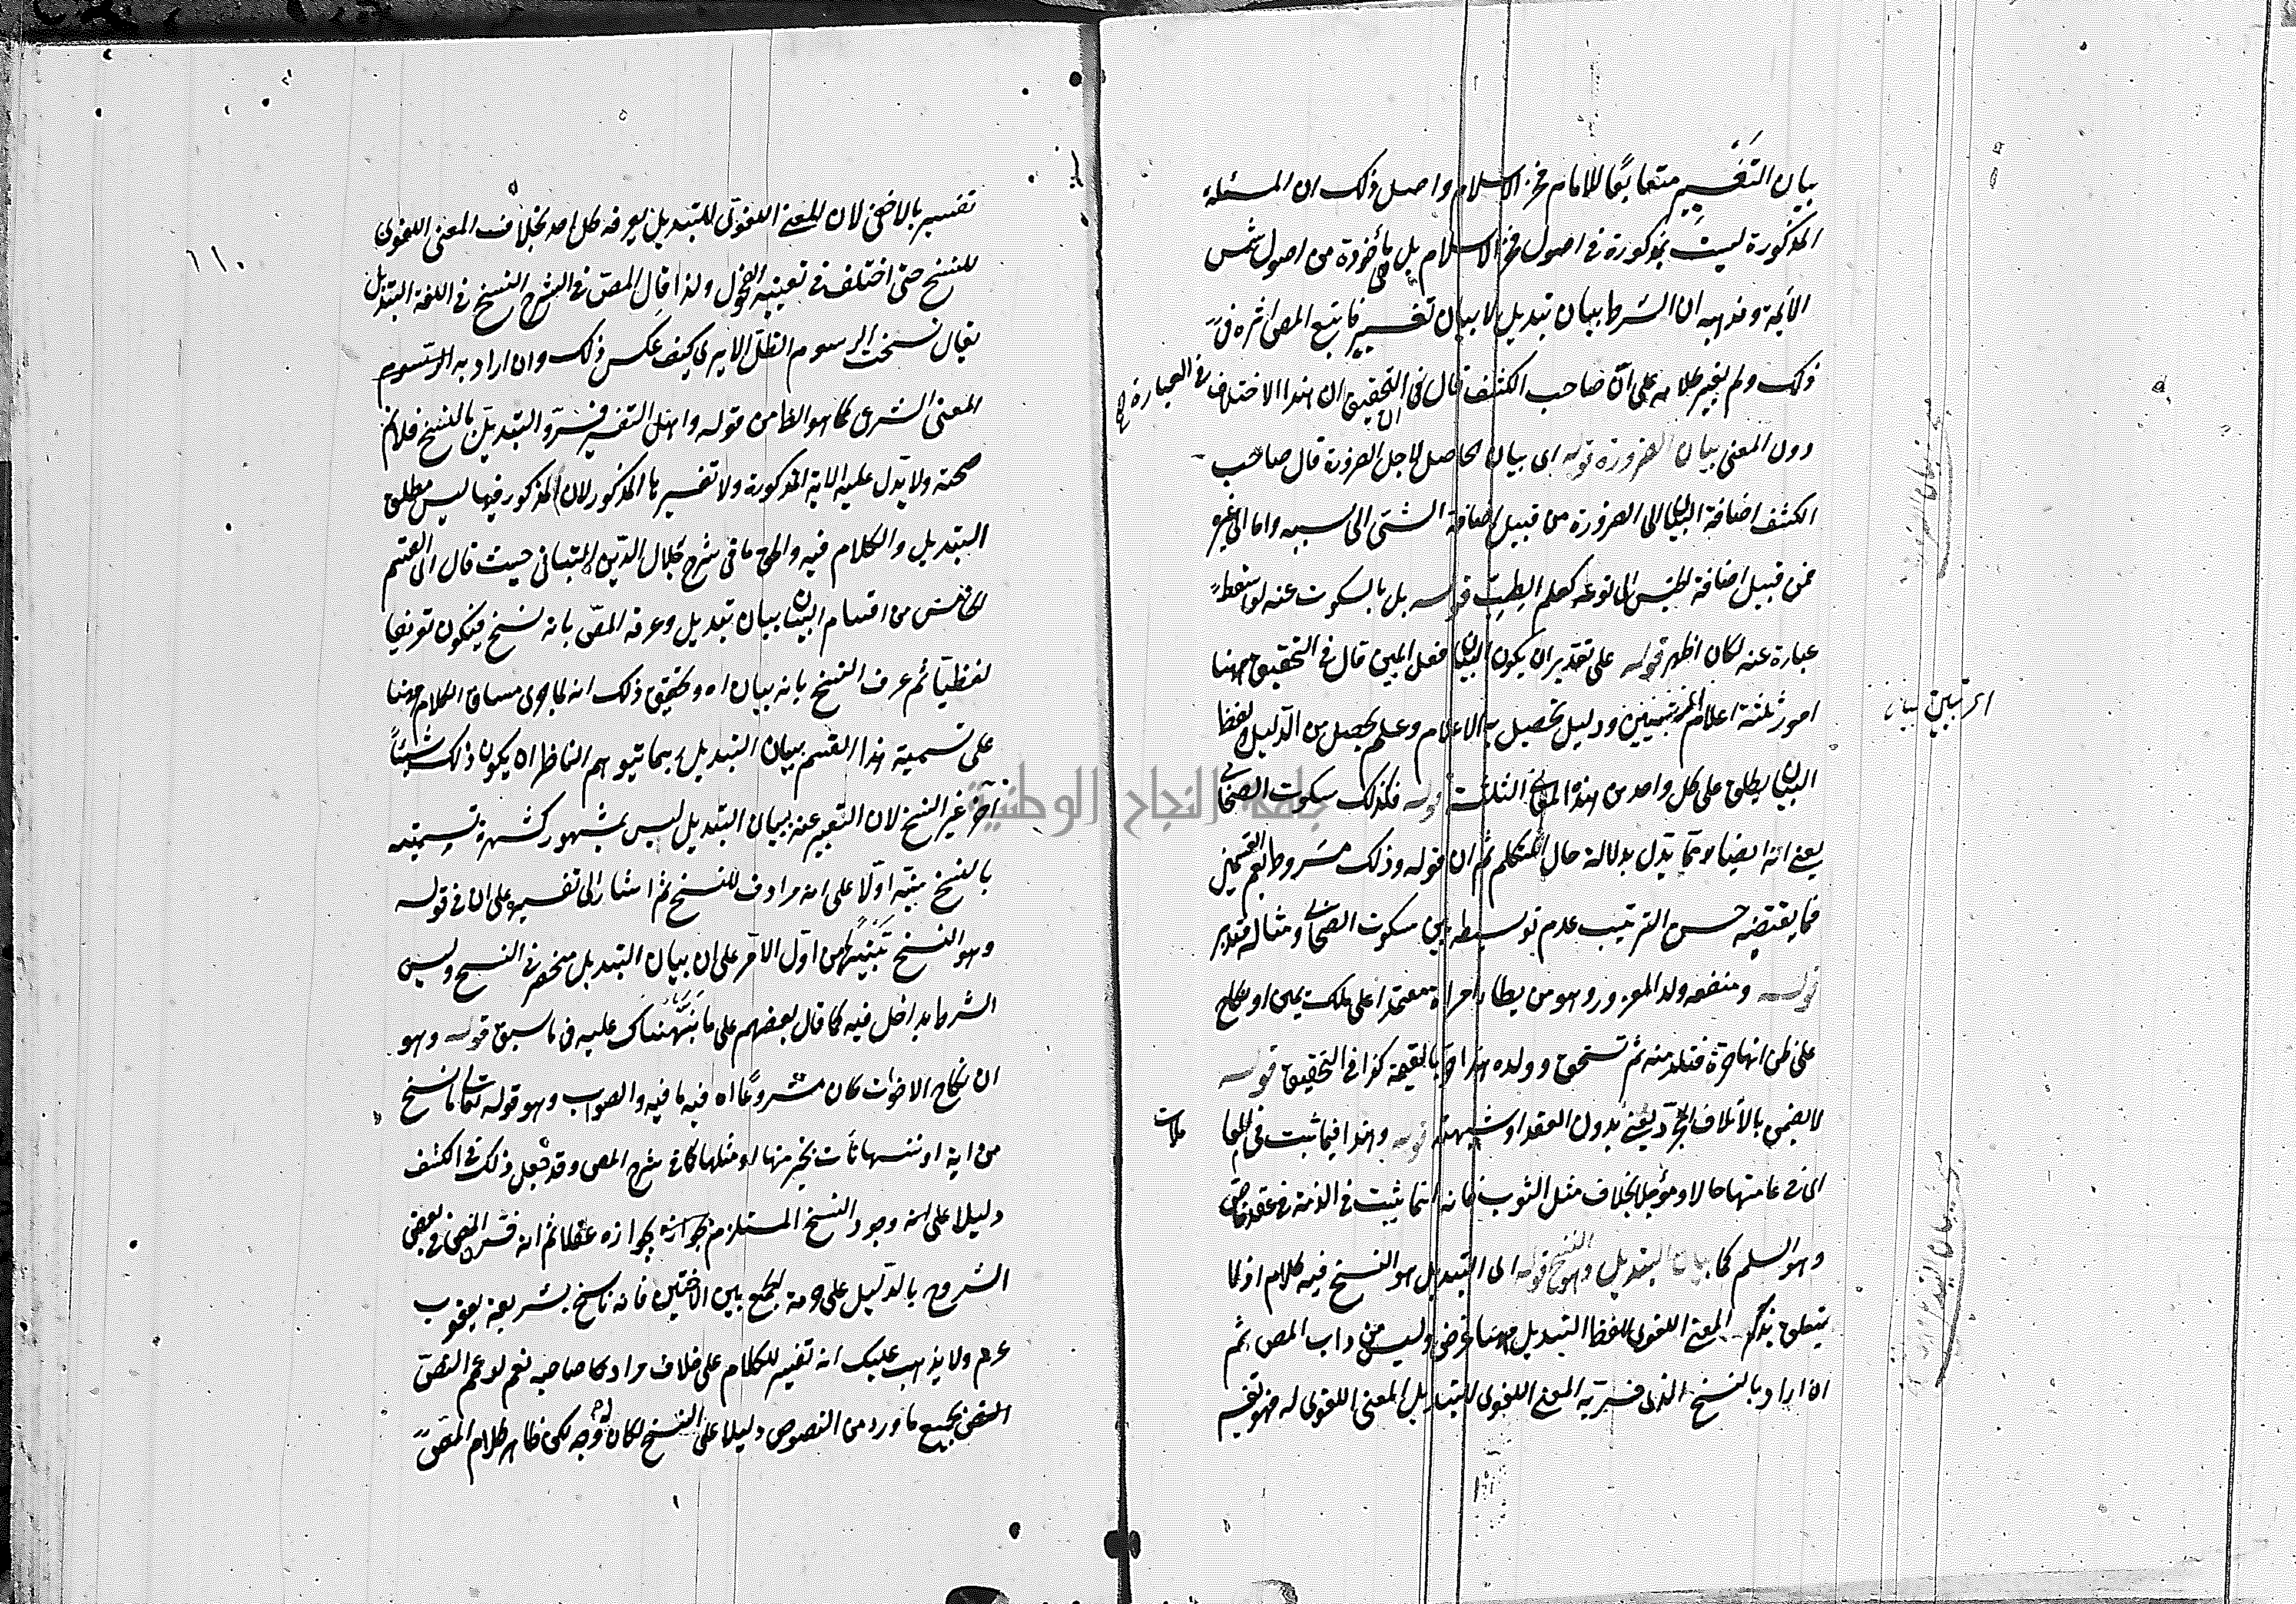 بيان التغيير متعابعا للامام فخر الاسلام واصل ذلك ان المسئلة
المذكورة ليست بمذكورة في اصول فخر الاسلام بل هي مأخوذة من اصول شمس
الائمة ومذهبه ان الشرط بيان تبديل لا بيان تغيير فاتبع المص اثره في
ذلك ولم يغير كلامه على ان صاحب الكشف قال في التحقيق ان هذا الاختلاف في العبارة
دون المعنى بيان الضرورة قوله اى بيان الحاصل لاجل الضرورة قال صاحب
الكشف اضافة البيان الى الضرورة من قبيل اضافة الشئ الى سببه واما الى غيره
فمن قبيل اضافة الجنس الى نوعه كعلم الطب قوله بل بالسكوت عنه لو اسقط
عبارة عنه لكان اظهر قوله على تقدير ان يكون البيان فعل المبين قال في التحقيق ههنا
امور ثلثة اعلام اى تبيين ودليل تحصيل به الاعلام وعلم يحصل من الدليل ولفظ
البيان يطلق على كل واحد من هذه المعاني الثلثة قوله فكذلك سكوت الصحابي
يعنى انه ايضا مما يدل بدلالة حال المتكلم ثم ان قوله وذلك مشروط يعم القسمين
فما يقتضيه حسن الترتيب عدم توسيطه بين سكوت الصحابي ومثاله فتدبر
قوله ومنفعة ولد المغرور وهو من يطأ امرأة معتمدا على ملك يمين او نكاح
على ظن انها حرة فتلد منه ثم تستحق وولده هذا حر بالقيمة كذا في التحقيق قوله
لا يضمن بالاتلاف المجرد يعنى بدون العقد او شبهته قوله وهذا فيما ثبت في المعا
ملات
اى في عامتها حالا ومؤجلا بخلاف مثل الثوب فانه انما يثبت في الذمة في عقد خاص
وهو السلم كما بيان التبديل وهو النسخ قوله اى التبديل هو النسخ فيه كلام اذ لا
يتعلق بذكر المعنى اللغوى للفظ التبديل ههنا غرض وليس من داب المص ثم
ان اراد بالنسخ الذى فسر به المعنى اللغوى للتبديل المعنى اللغوى له فهو تفسير
اى تبيين بيان
١١٠
تفسير بالاخفى لان المعنى اللغوى للتبديل يعرفه كل احد بخلاف المعنى اللغوى
للنسخ حتى اختلف في تعيينه الفحول ولذا قال المص في الشرح النسخ في اللغة التبديل
يقال نسخت الرسوم الظل الا يرى كيف عكس ذلك وان اراد به الرسوم
المعنى الشرعى كما هو الظ من قوله واهل التفسير فسروا التبديل بالنسخ فلا نم
صحته ولا يدل عليه الاية المذكورة ولا تفسيرها المذكور لان المذكور فيها ليس مطلق
التبديل والكلام فيه والحق ما في شرح جلال الدين التبانى حيث قال اى القسم
الخامس من اقسام البيان بيان تبديل وعرفه المص بانه نسخ فيكون تعريفا
لفظيا ثم عرف النسخ بانه بيان اه وتحقيق ذلك انه لما جرى مساق الكلام ههنا
على تسمية هذا القسم ببيان التبديل ربما يتوهم الناظر ان يكون ذلك شيئا
آخر غير النسخ لان التعبير عنه ببيان التبديل ليس بمشهور كشهرة تسميته
بالنسخ نبه اولا على انه مرادف للنسخ ثم اشار الى تفسيره على ان في قوله
وهو النسخ تنبيها من اول الامر على ان بيان التبديل منحصر في النسخ وليس
الشرط بداخل فيه كما قال بعضهم على ما نبهناك عليه في ما سبق قوله وهو
ان نكاح الاخوات كان مشروعا اه فيه ما فيه والصواب وهو قوله تعالى ما ننسخ
من اية او ننسها نأت بخير منها او مثلها كما في شرح المص وقد جعل ذلك في الكشف
دليلا على انه وجود النسخ المستلزم لجوازه عقلا ثم انه فسر النص في بعض
الشروح بالدليل على حرمة الجمع بين الاختين فانه ناسخ بشريعة يعقوب
عم ولا يذهب عليك انه تفسير للكلام على خلاف مراد صاحبه نعم لو عمم النص
النص بجميع ما ورد من النصوص دليلا على النسخ لكان له وجه لكن ظاهر كلام المص